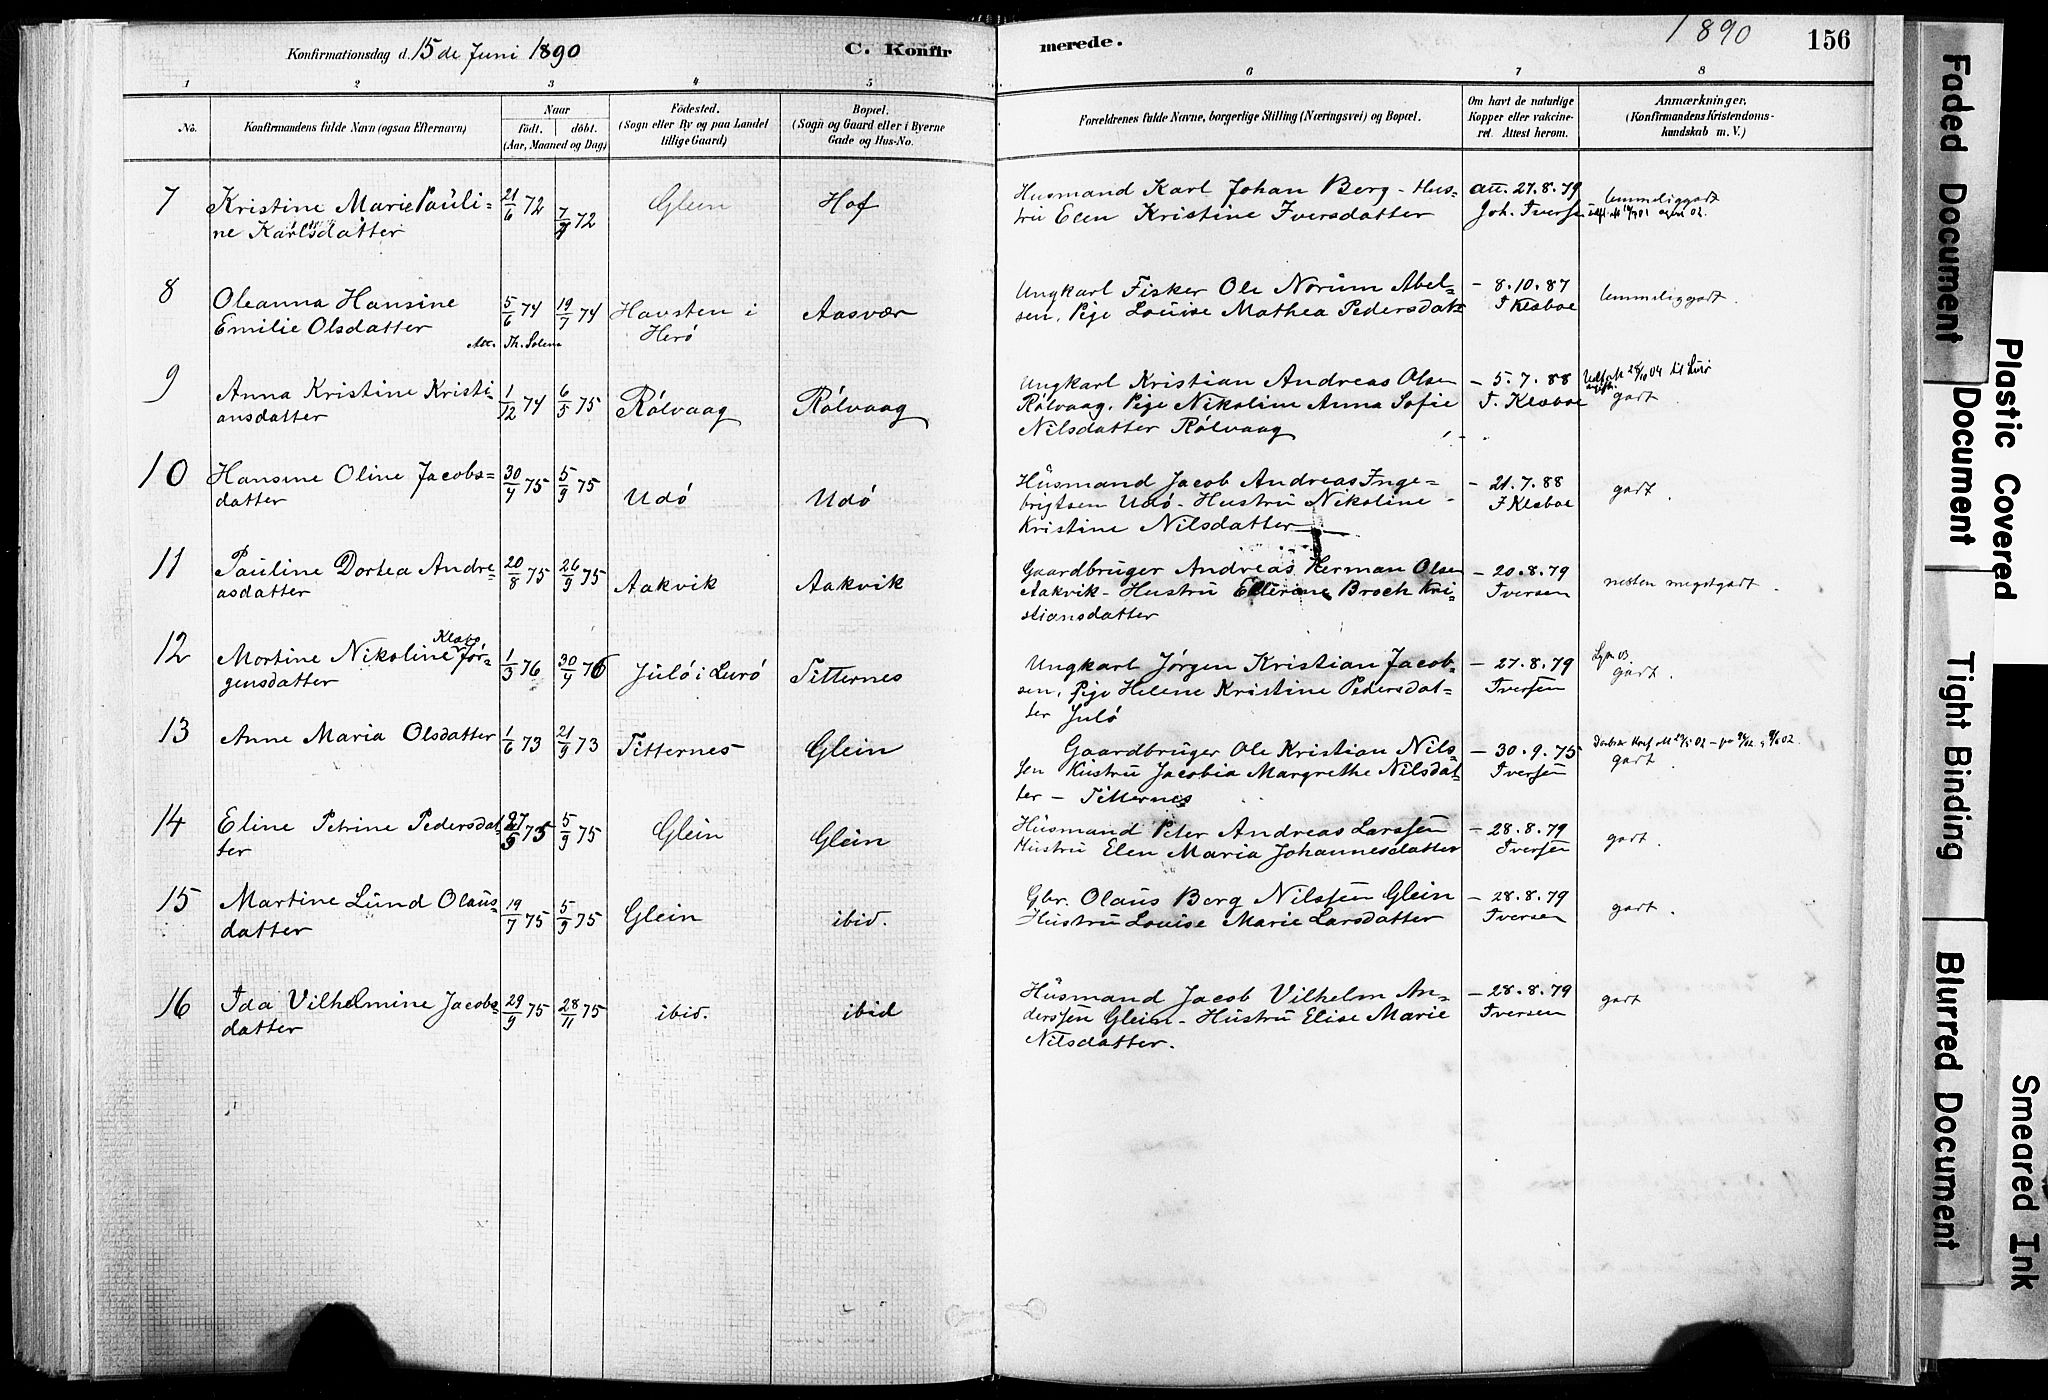 Konfirmationsdag d. 15 de Juni 1890
C. Konfirmerede.
1890
156
1 2 3 4 5 6 7 8
No.
Konfirmandens fulde Navn (ogsaa Efternavn)
Naar
födt. döbt.
(Aar, Maaned og Dag)
Födested.
(Sogn eller By og paa Landet
tillige Gaard)
Bopæl.
(Sogn og Gaard eller i Byerne
Gade og Hus-No.
Forældrenes fulde Navne, borgerlige Stilling (Næringsvei) og Bopæl.
Om havt de naturlige
Kopper eller vakcine-
ret. Attest herom.
Anmærkninger.
(Konfirmandens Kristendoms-
kundskab m. V.)
7 Kristine Marie Pauli= 21/6 72 7/9 72 Glein Hof Husmand Karl Johan Berg - Hus= att. 27.8.79 temmeliggodt
ne Karlsdatter tru Elen Kristine Iversdatter Joh. Iversen
8 Oleanna Hansine 5/6 74 19/7 74 Havsten i Aasvær Ungkarl Fisker Ole Norum Abel= - 8.10.87 temmeliggodt.
Emilie Olsdatter Herö sen. Pige Louise Mathea Pedersdat= Klæboe
Att. Th. Solem
9 Anna Kristine Kristi= 1/12 74 6/5 75 Rölvaag Rölvaag Ungkarl Kristian Andreas Olsen - 5.7.88 godt.
ansdatter Rölvaag. Pige Nikoline Anna Sofie Klæboe
Nilsdatter Rölvaag
10 Hansine Oline Jacobs= 30/4 75 5/9 75 Udö Udö Husmand Jacob Andreas Inge= - 21.7.88 godt.
datter brigtsen Udö - Hustru Nikoline Klæboe
Kristine Nilsdatter
11 Pauline Dortea Andre= 20/8 75 26/9 75 Aakvik Aakvik Gaardbruger Andreas Herman Olsen - 20.8.79 nesten megetgodt.
asdatter Aakvik - Hustru Ellerine Broch Kri= Iversen
stiansdatter
12 Mortine Nikoline Klæbo Jör= 1/3 76 30/4 76 Julö i Lurö Titternes Ungkarl Jörgen Kristian Jacob= - 27.8.79 godt.
gensdatter sen. Pige Helene Kristine Pedersdat= Iversen
ter Julö
13 Anne Maria Olsdatter 1/6 73 21/9 73 Titternes Glein Gaardbruger Ole Kristian Nils= - 30.9.75 godt.
sen Hustru Jacobia Margrethe Nilsdat= Iversen
ter - Titternes
14 Eline Petrine Pedersdat= 75 5/9 75 Glein Glein Husmand Peter Andreas Larssen - 28.8.79 godt.
ter Hustru Elen Maria Johannesdatter Iversen
15 Martine Lund Olaus= 19/7 75 5/9 75 Glein ibid. Gbr. Olaus Berg Nilssen Glein - 28.8.79 godt.
datter Hustru Louise Marie Larsdatter Iversen
16 Ida Vilhelmine Jacobs= 29/9 75 28/11 75 ibid. ibid Husmand Jacob Vilhelm An= - 28.8.79 godt
datter derssen Glein - Hustru Elise Marie Iversen
Nilsdatter.
Faded Document
Plastic Covered Document
Tight Binding
Blurred Document
Smeared Ink